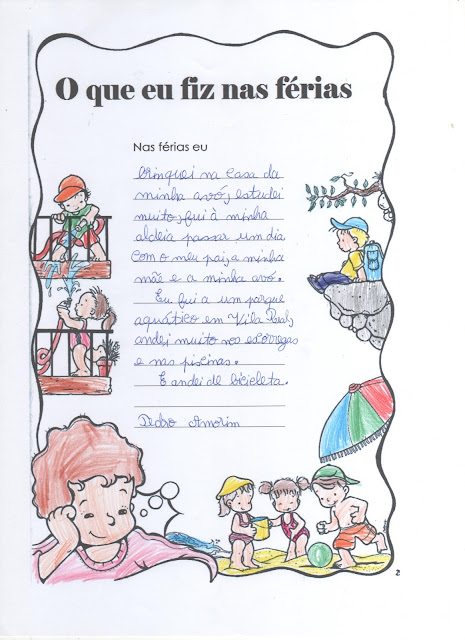 O que eu fiz nas férias
Nas férias eu
brinquei na casa da
minha avó, estudei
muito, fui à minha
aldeia passar um dia
com o meu pai, a minha
mãe e a minha avó.
Eu fui a um parque
aquático em Vila Real,
andei muito nos escorregas
e nas piscinas.
E andei de bicicleta.
Pedro Amorim